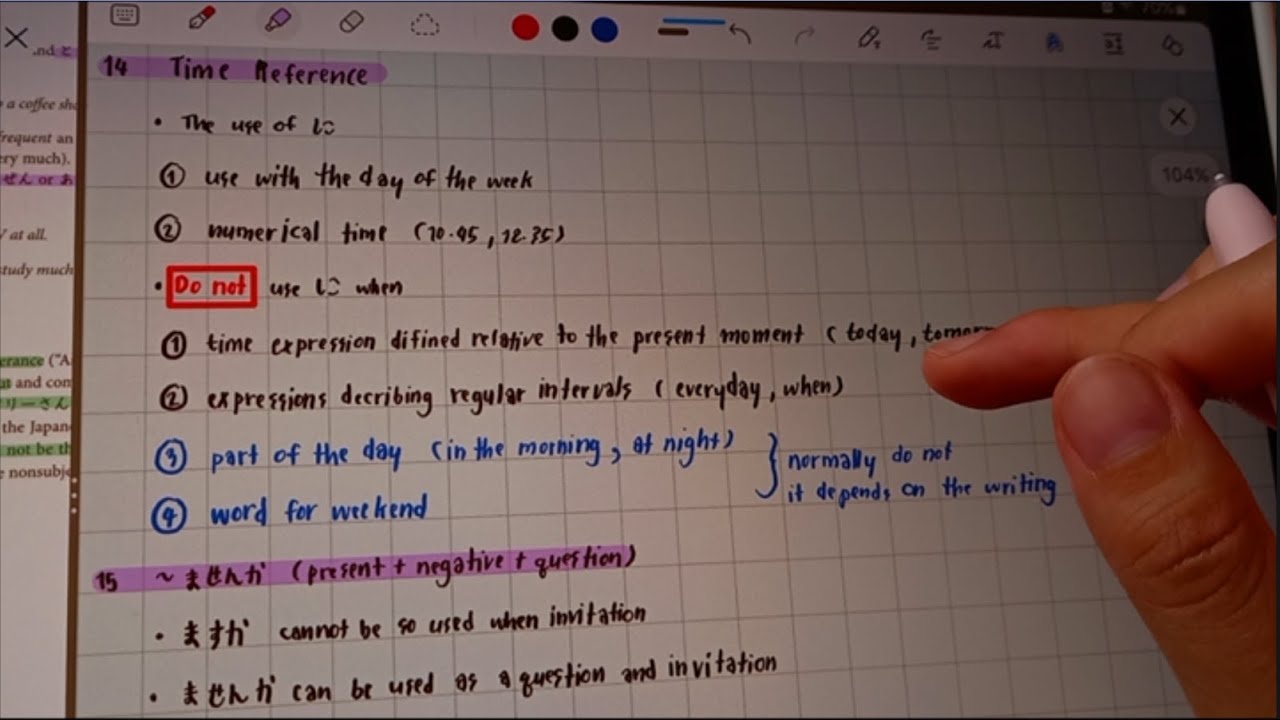 70%
.nd と
a coffee sh
frequent an
ery much).
せん or あ
at all.
study much
erance ("A
at and com
リーさん
the Japan
not be th
e nonsubje
14 Time Reference
• The use of に
① use with the day of the week
② numerical time (10.45, 12.35)
• Do not use に when
① time expression difined relative to the present moment (today, tomor
② expressions decribing regular intervals (everyday, when)
③ part of the day (in the morning, at night)
④ word for weekend
} normally do not
it depends on the writing
15 ~ませんか (present + negative + question)
• ますか cannot be so used when invitation
• ませんか can be used as a question and invitation
104%